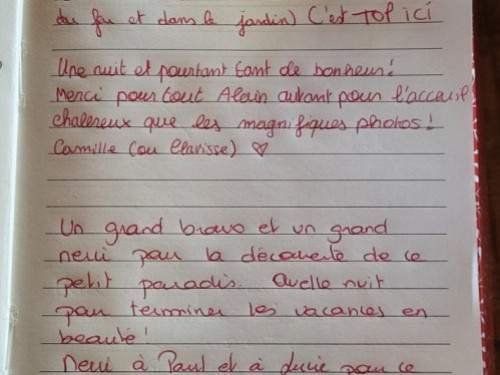 du feu et dans le jardin) C'est TOP ici
Une nuit et pourtant tant de bonheur!
Merci pour tout Alain autant pour l'accueil
chalereux que les magnifiques photos!
Camille (ou Clarisse) ♡
Un grand bravo et un grand
merci pour la découverte de ce
petit paradis. Quelle nuit
pour terminer les vacances en
beauté!
Merci à Paul et à Lucie pour ce